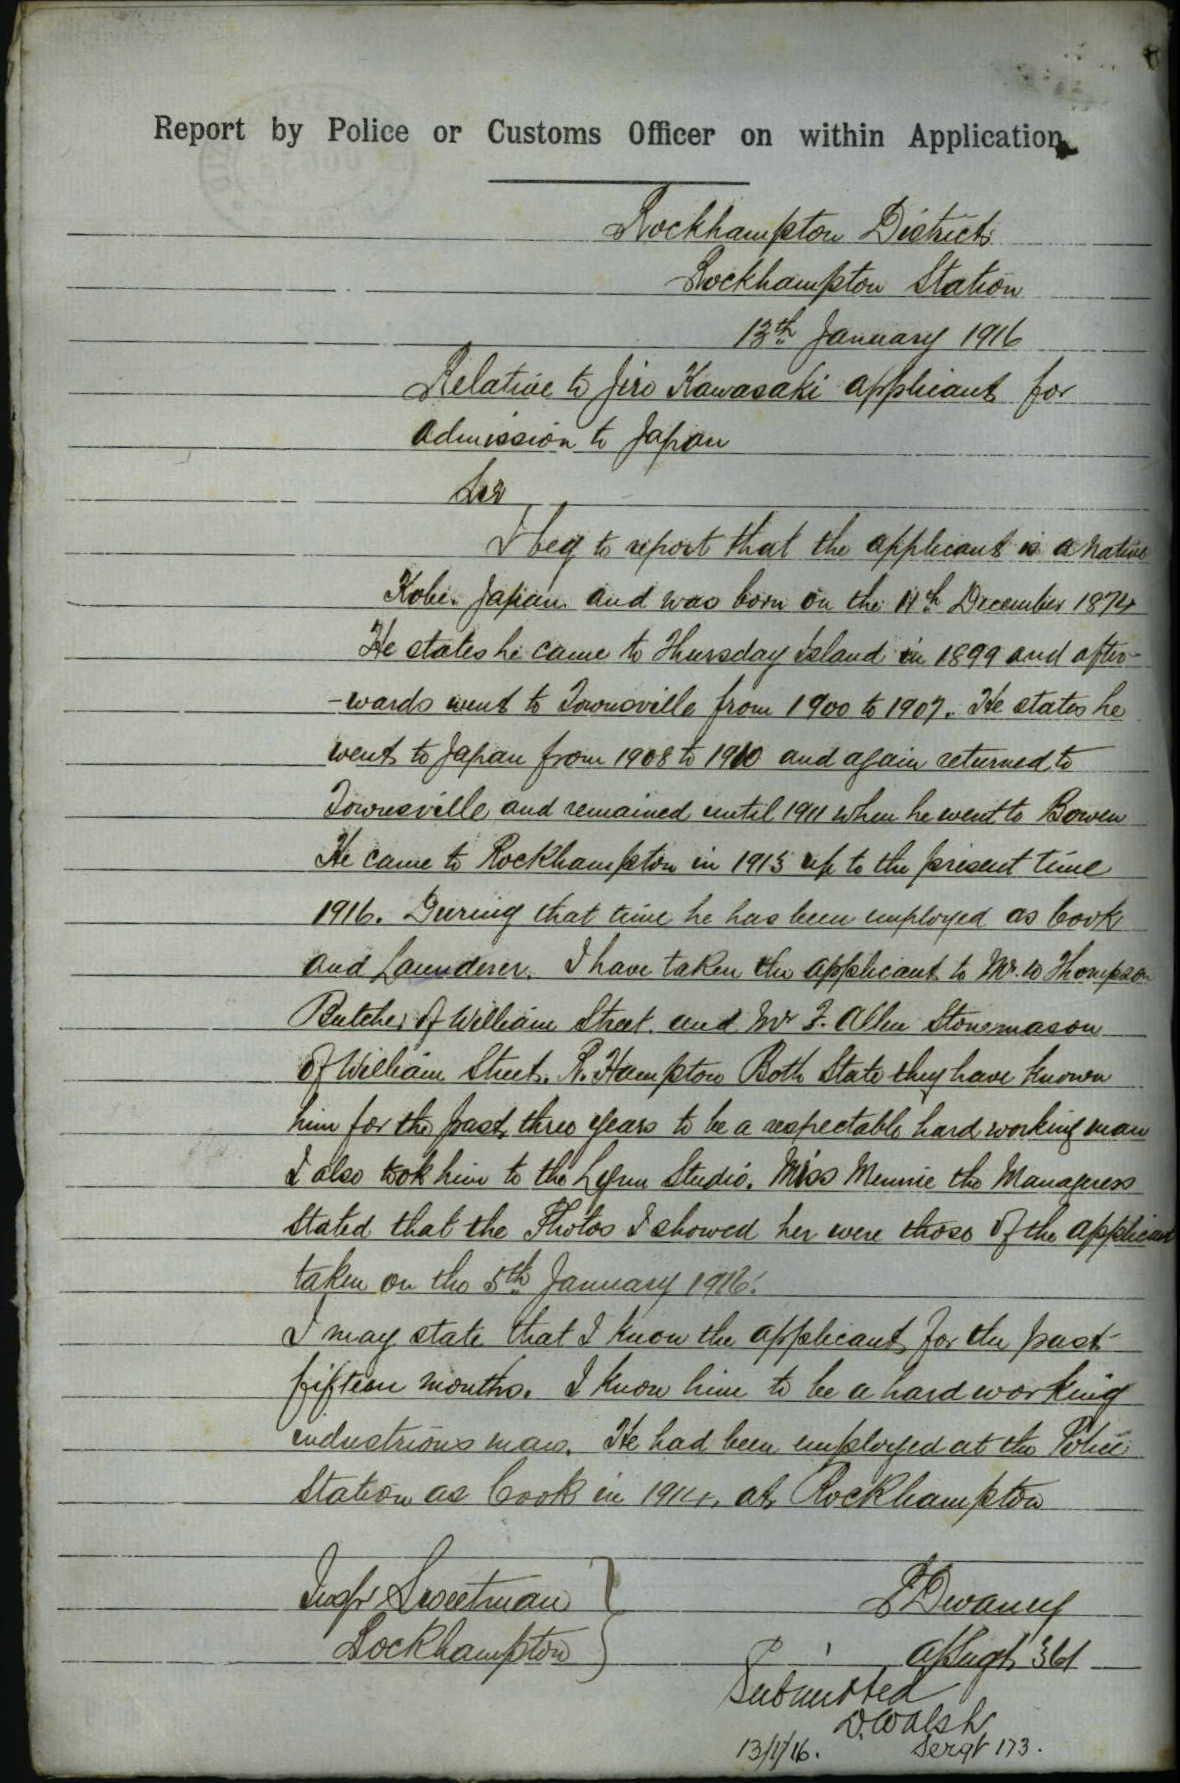 Report by Police or Customs Officer on within Application
Rockhampton District
Rockhampton Station
13th January 1916
Relative to Jiro Kawasaki applicant for
admission to Japan
Sir
I beg to report that the applicant is a native
Kobe. Japan. and was born on the 11th December 1874
He states he came to Thursday Island in 1899 and after-
-wards went to Townsville from 1900 to 1907. He states he
went to Japan from 1908 to 1910 and again returned to
Townsville and remained until 1911 when he went to Bowen
He came to Rockhampton in 1913 up to the present time
1916. During that time he has been employed as Cook
and Launderer. I have taken the applicant to Mr. W Thompson
Butcher of William Street. and Mr F. Allen Stonemason
of William Street. R. Hampton Both State they have known
him for the past three years to be a respectable hard working man
I also took him to the Lyrm Studio. Miss Mennie the Manageress
Stated that the Photos I showed her were those of the applicant
taken on the 5th January 1916.
I may state that I know the applicant for the past
fifteen months. I know him to be a hard working
industrious man. He had been employed at the Police
Station as Cook in 1914, at Rockhampton
Insp Sweetman
Rockhampton
Dwaney
A/Sergt 361
Submitted
D. Walsh
Sergt 173.
13/1/16.